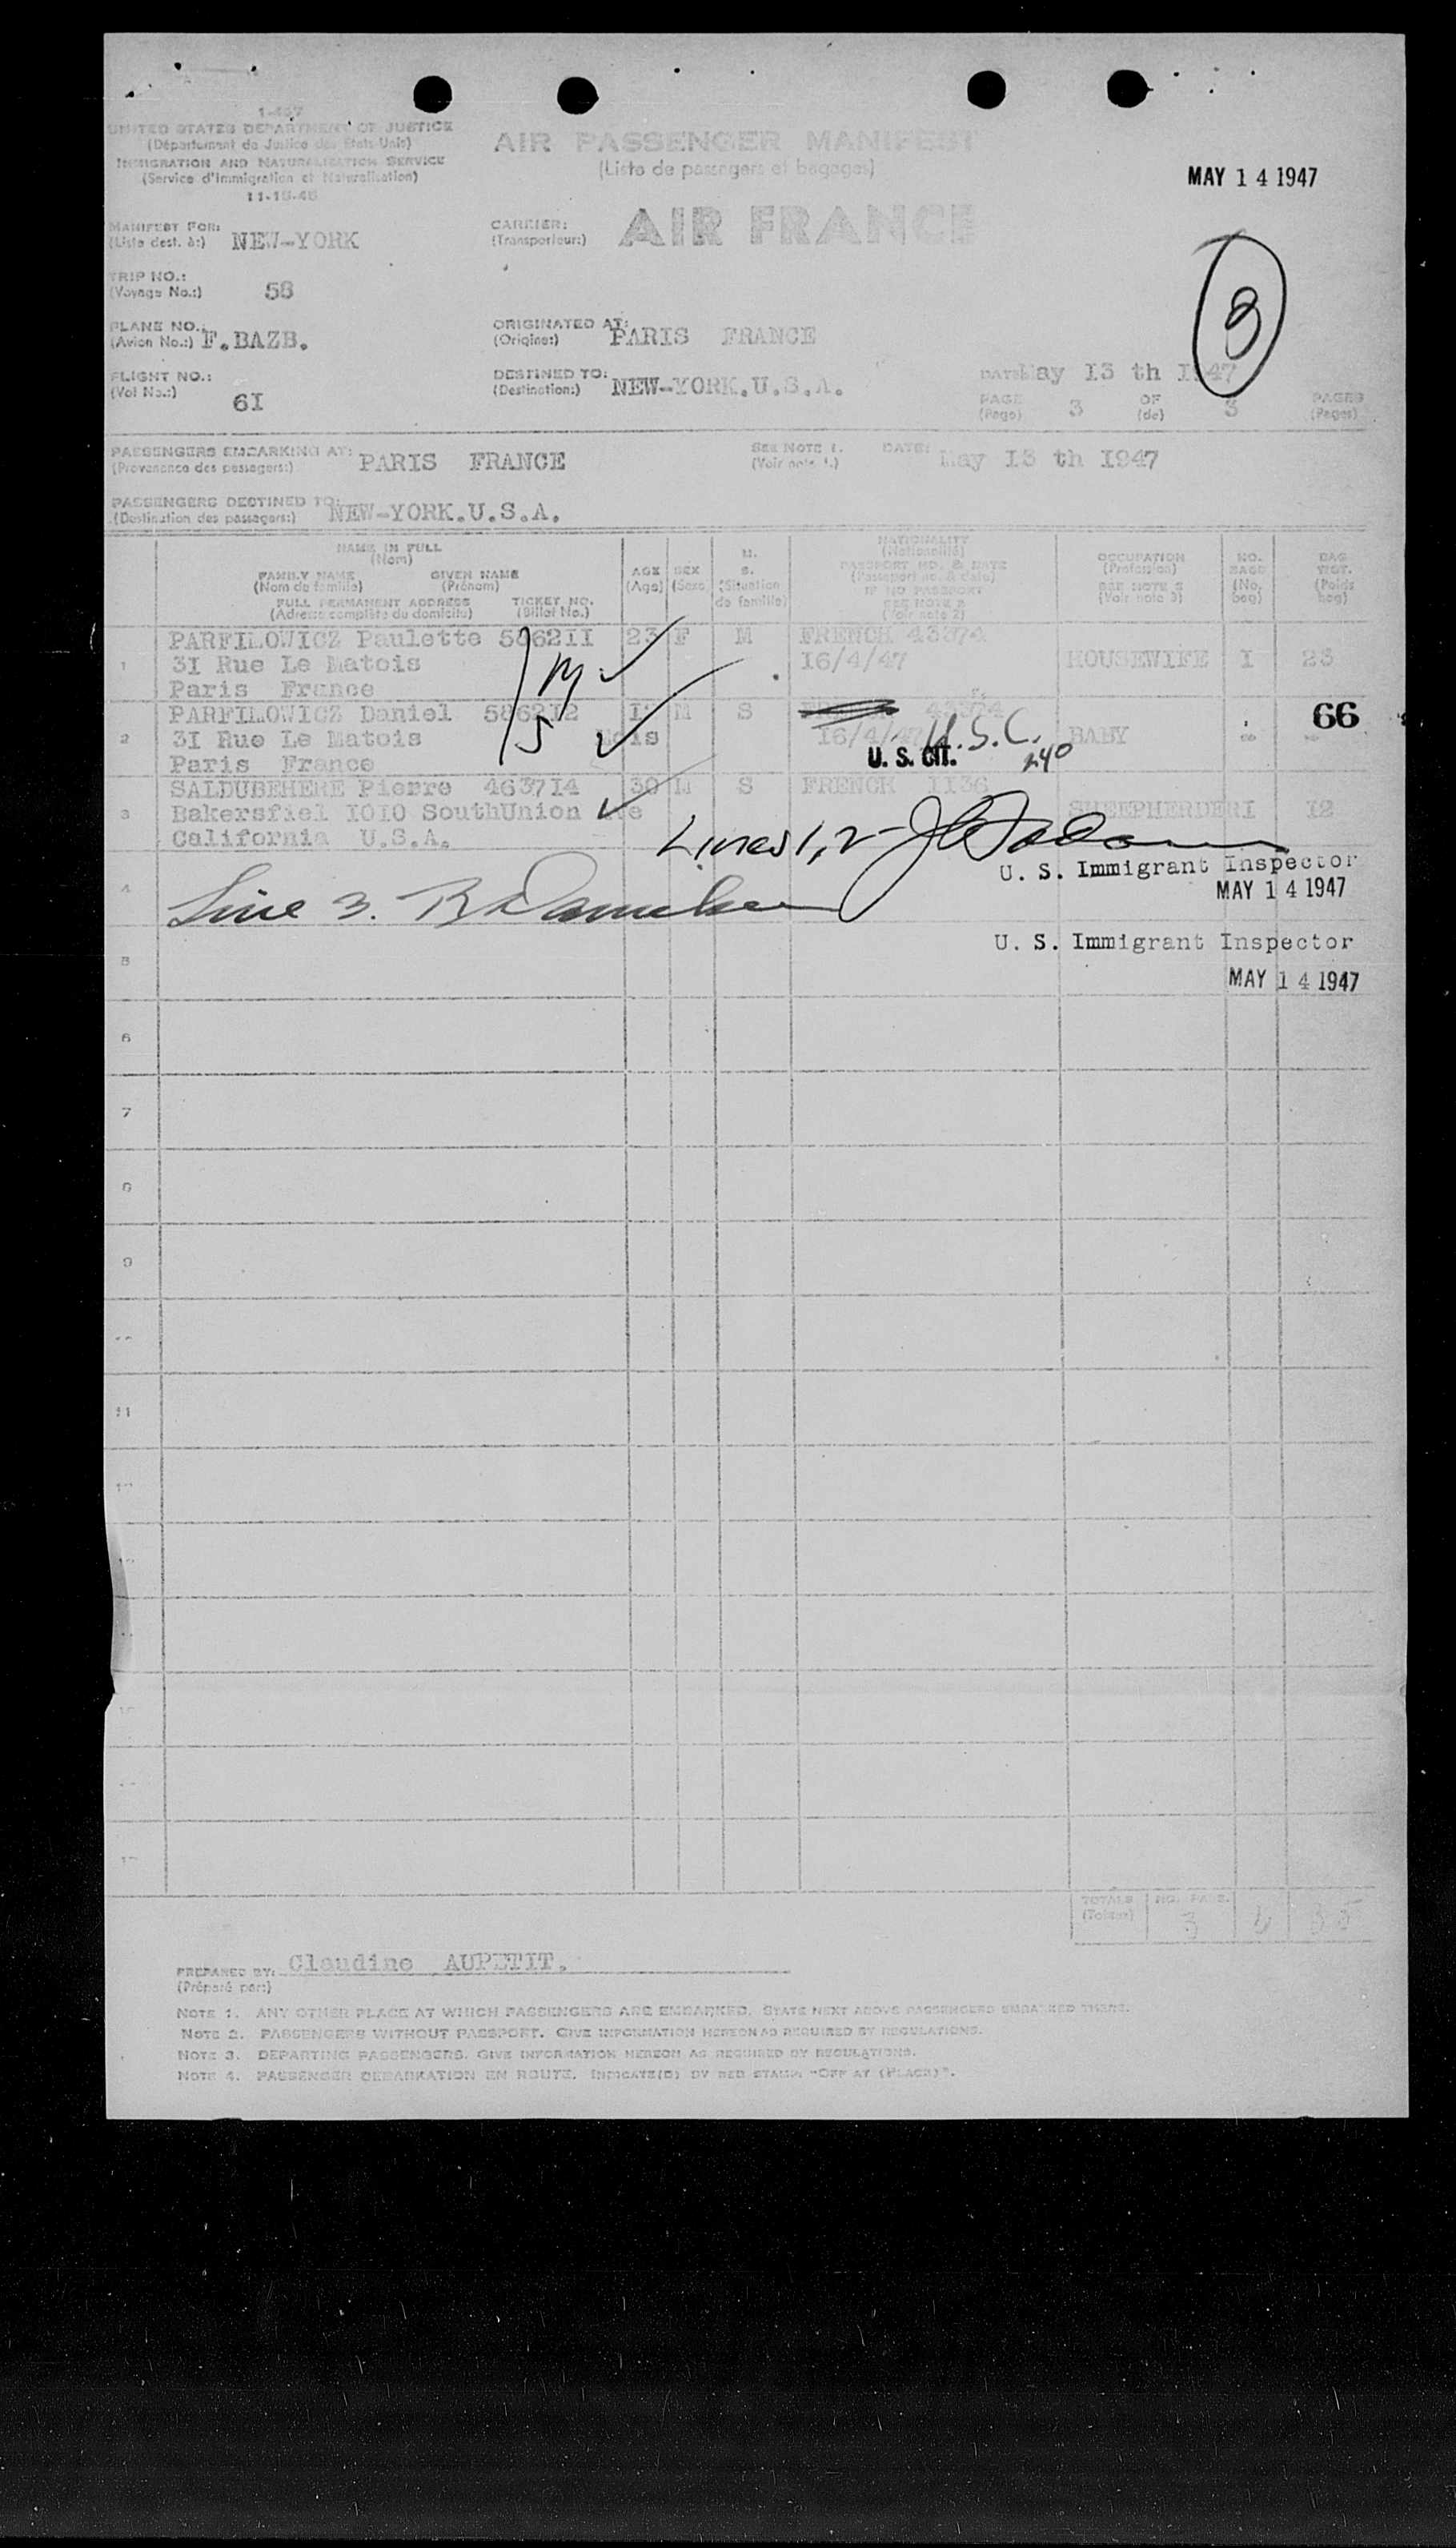 1-467
UNITED STATES DEPARTMENT OF JUSTICE
(Département de Justice des Etats-Unis)
IMMIGRATION AND NATURALIZATION SERVICE
(Service d'Immigration et Naturalisation)
11-15-46
AIR PASSENGER MANIFEST
(Liste de passagers et bagages)
MAY 14 1947
MANIFEST FOR: NEW-YORK
(Liste dest. à:)
CARRIER: AIR FRANCE
(Transporteur:)
TRIP NO.: 58
(Voyage No.:)
3
PLANE NO. F.BAZB.
(Avion No.:)
ORIGINATED AT: PARIS FRANCE
(Origine:)
FLIGHT NO.: 6I
(Vol No.:)
DESTINED TO: NEW-YORK.U.S.A.
(Destination:)
DATE: May I3 th I947
PAGE 3 OF 3 PAGES
(Page) (de) (Pages)
PASSENGERS EMBARKING AT: PARIS FRANCE
(Provenance des passagers:)
SEE NOTE 1. DATE: May I3 th I947
(Voir note 1.)
PASSENGERS DESTINED TO: NEW-YORK.U.S.A.
(Destination des passagers:)
NAME IN FULL
(Nom)
FAMILY NAME GIVEN NAME
(Nom de famille) (Prénom)
FULL PERMANENT ADDRESS TICKET NO.
(Adresse complète du domicile) (Billet No.)
AGE
(Age)
SEX
(Sexe
M.
S.
(Situation
de famille)
NATIONALITY
(Nationalité)
PASSPORT NO. & DATE
(Passeport no. & date)
IF NO PASSPORT
SEE NOTE 2
(Voir note 2)
OCCUPATION
(Profession)
SEE NOTE 3
(Voir note 3)
NO.
BAGG
(No.
bag)
BAG
WGT.
(Poids
bag)
1 PARFILOWICZ Paulette 5862II 23 F M FRENCH 43374
3I Rue Le Matois M 16/4/47 HOUSEWIFE I 23
Paris France
2 PARFILOWICZ Daniel 586212 M S 43374 66
3I Rue Le Matois S 16/4/47 U.S.C. BABY
Paris France U. S. CIT. 240
3 SALDUBEHERE Pierre 463714 30 M S FRENCH II36
Bakersfiel IOIO SouthUnion Ave SHEEPHERDER I I2
California U.S.A.
Lines 1, 2
U. S. Immigrant Inspector
MAY 14 1947
4 Line 3.
U. S. Immigrant Inspector
5
MAY 14 1947
6
7
8
9
10
11
TOTALS NO. PASS.
(Totaux) 3
PREPARED BY: Claudine AUPETIT.
(Préparé par:)
NOTE 1. ANY OTHER PLACE AT WHICH PASSENGERS ARE EMBARKED, STATE NEXT ABOVE PASSENGERS EMBARKED THERE.
NOTE 2. PASSENGERS WITHOUT PASSPORT. GIVE INFORMATION HEREON AS REQUIRED BY REGULATIONS.
NOTE 3. DEPARTING PASSENGERS. GIVE INFORMATION HEREON AS REQUIRED BY REGULATIONS.
NOTE 4. PASSENGER DEBARKATION EN ROUTE. INDICATE(D) BY RED STAMP "OFF AT (PLACE)".